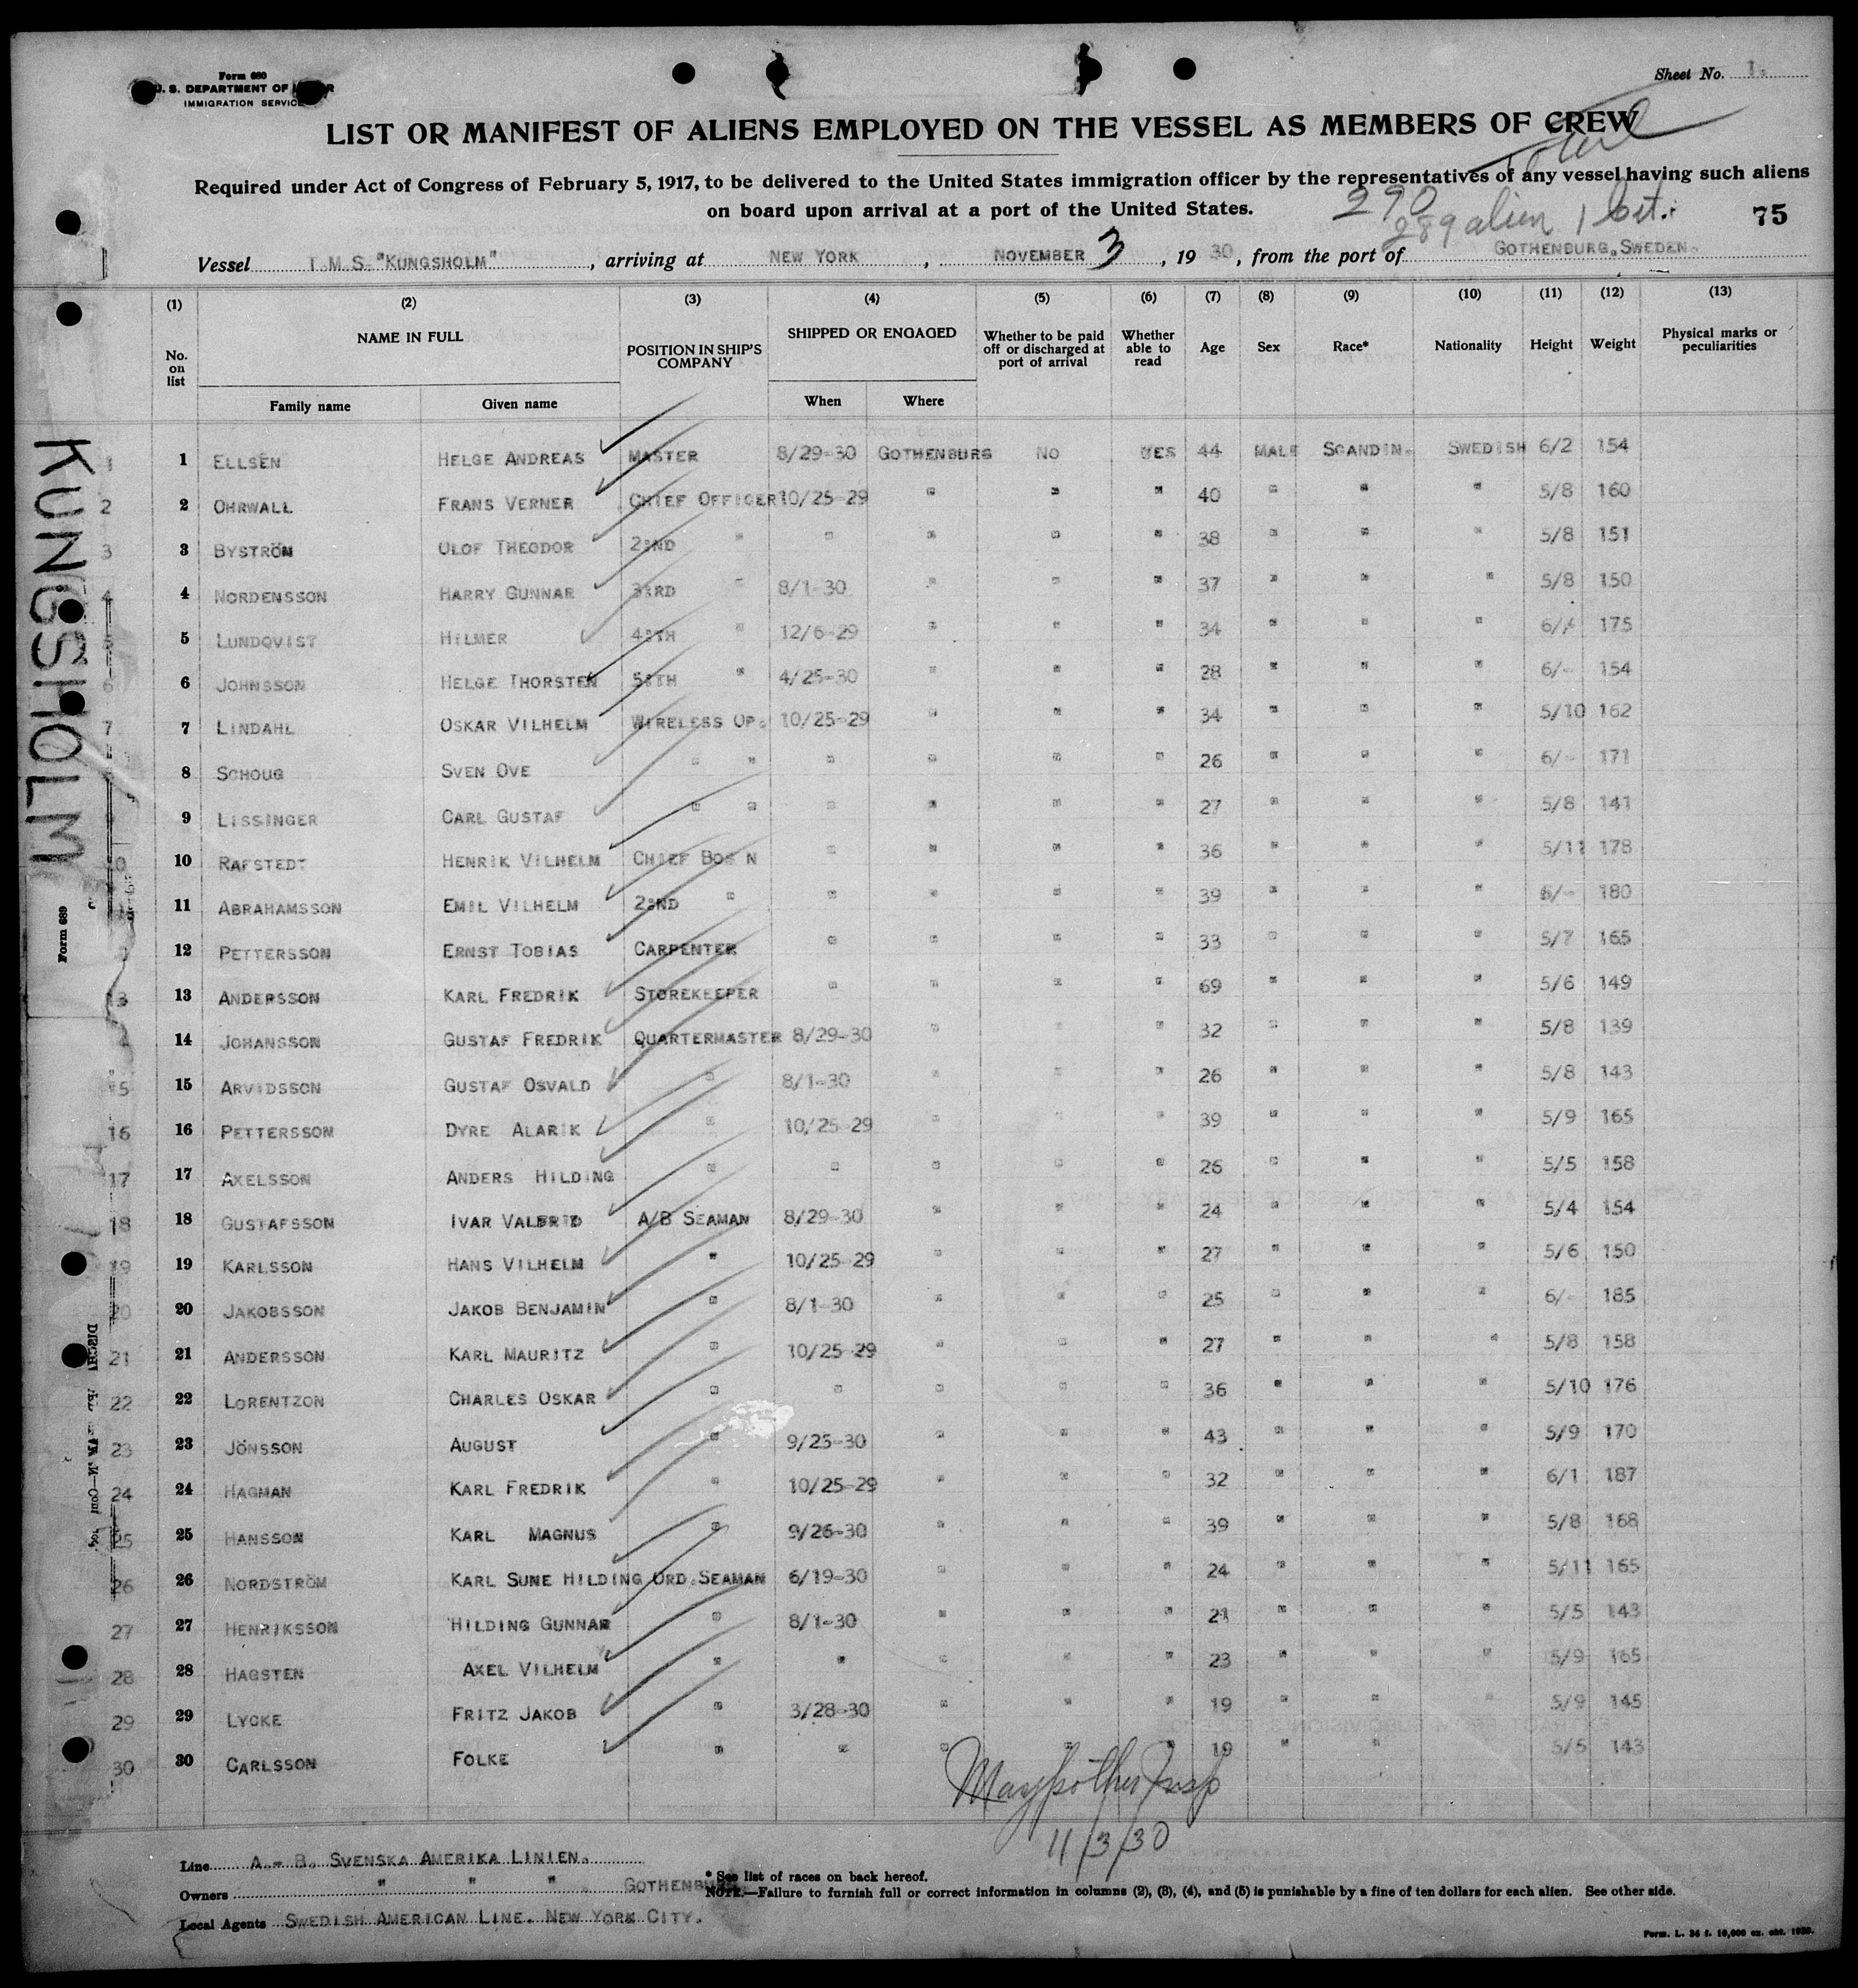 Form 680
U. S. DEPARTMENT OF
IMMIGRATION SERVICE
Sheet No. 1.
LIST OR MANIFEST OF ALIENS EMPLOYED ON THE VESSEL AS MEMBERS OF CREW
Required under Act of Congress of February 5, 1917, to be delivered to the United States immigration officer by the representatives of any vessel having such aliens
on board upon arrival at a port of the United States.
290
289 alien 1 Cit.
75
Vessel T.M.S. "KUNGSHOLM", arriving at NEW YORK, NOVEMBER 3, 1930, from the port of GOTHENBURG, SWEDEN.
(1) (2) (3) (4) (5) (6) (7) (8) (9) (10) (11) (12) (13)
No. on list NAME IN FULL POSITION IN SHIP'S COMPANY SHIPPED OR ENGAGED Whether to be paid off or discharged at port of arrival Whether able to read Age Sex Race* Nationality Height Weight Physical marks or peculiarities
Family name Given name When Where
KUNGSHOLM
Form 689
1 1 ELLSEN HELGE ANDREAS MASTER 8/29-30 GOTHENBURG NO YES 44 MALE SCANDIN. SWEDISH 6/2 154
2 2 OHRWALL FRANS VERNER CHIEF OFFICER 10/25-29 " " " 40 " " " 5/8 160
3 3 BYSTRÖM OLOF THEODOR 2:ND " " " " " 38 " " " 5/8 151
4 4 NORDENSSON HARRY GUNNAR 3:RD " 8/1-30 " " " 37 " " " 5/8 150
5 5 LUNDQVIST HILMER 4:TH " 12/6-29 " " " 34 " " " 6/ 175
6 6 JOHNSSON HELGE THORSTEN 5:TH " 4/25-30 " " " 28 " " " 6/- 154
7 7 LINDAHL OSKAR VILHELM WIRELESS OP. 10/25-29 " " " 34 " " " 5/10 162
8 SCHOUG SVEN OVE " " " " " " 26 " " " 6/- 171
9 LISSINGER CARL GUSTAF " " " " " " 27 " " " 5/8 141
10 RAFSTEDT HENRIK VILHELM CHIEF BOS N " " " " 36 " " " 5/11 178
11 ABRAHAMSSON EMIL VILHELM 2:ND " " " " " 39 " " " 6/- 180
12 PETTERSSON ERNST TOBIAS CARPENTER " " " " 33 " " " 5/7 165
13 13 ANDERSSON KARL FREDRIK STOREKEEPER " " " " 69 " " " 5/6 149
14 JOHANSSON GUSTAF FREDRIK QUARTERMASTER 8/29-30 " " " 32 " " " 5/8 139
15 15 ARVIDSSON GUSTAF OSVALD " 8/1-30 " " " 26 " " " 5/8 143
16 16 PETTERSSON DYRE ALARIK " 10/25-29 " " " 39 " " " 5/9 165
17 17 AXELSSON ANDERS HILDING " " " " " 26 " " " 5/5 158
18 18 GUSTAFSSON IVAR A/B SEAMAN 8/29-30 " " " 24 " " " 5/4 154
19 19 KARLSSON HANS VILHELM " 10/25-29 " " " 27 " " " 5/6 150
20 20 JAKOBSSON JAKOB BENJAMIN " 8/1-30 " " " 25 " " " 6/- 185
21 21 ANDERSSON KARL MAURITZ " 10/25-29 " " " 27 " " " 5/8 158
22 22 LORENTZON CHARLES OSKAR " " " " " 36 " " " 5/10 176
23 23 JÖNSSON AUGUST " 9/25-30 " " " 43 " " " 5/9 170
24 24 HAGMAN KARL FREDRIK " 10/25-29 " " " 32 " " " 6/1 187
25 25 HANSSON KARL MAGNUS " 9/26-30 " " " 39 " " " 5/8 168
26 26 NORDSTRÖM KARL SUNE HILDING ORD.SEAMAN 6/19-30 " " " 24 " " " 5/11 165
27 27 HENRIKSSON HILDING GUNNAR " 8/1-30 " " " 21 " " " 5/5 143
28 28 HAGSTEN AXEL VILHELM " " " " " 23 " " " 5/9 165
29 29 LYCKE FRITZ JAKOB " 3/28-30 " " " 19 " " " 5/9 145
30 30 CARLSSON FOLKE " " " " " 19 " " 5/5 143
Insp
11/3/30
Line A.- B. SVENSKA AMERIKA LINIEN.
Owners " " " . GOTHENBURG
Local Agents SWEDISH AMERICAN LINE. NEW YORK CITY.
* See list of races on back hereof.
NOTE.—Failure to furnish full or correct information in columns (2), (3), (4), and (5) is punishable by a fine of ten dollars for each alien. See other side.
Form. L. 36 f. 10,000 ex. okt. 1929.